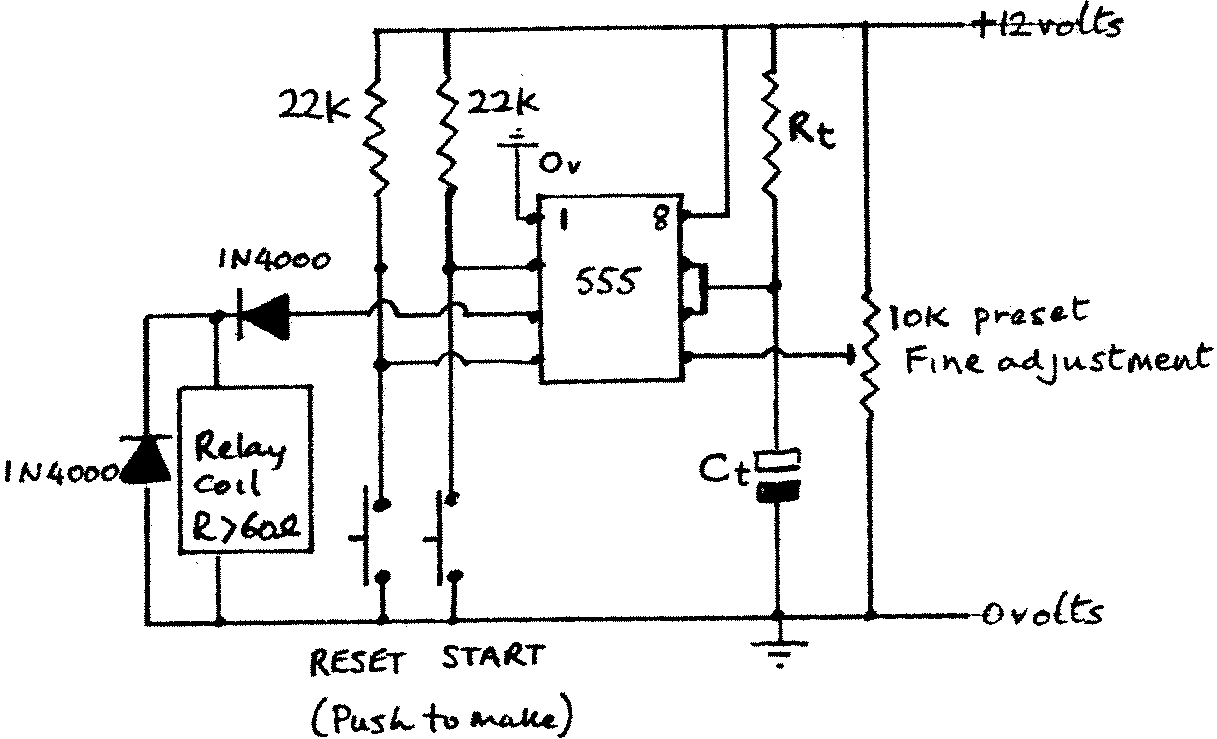 +12 volts
22k
22k
Rt
0v
1
8
1N4000
555
10K preset
Fine adjustment
1N4000
Relay
coil
R>60Ω
Ct
0 volts
RESET
START
(Push to make)